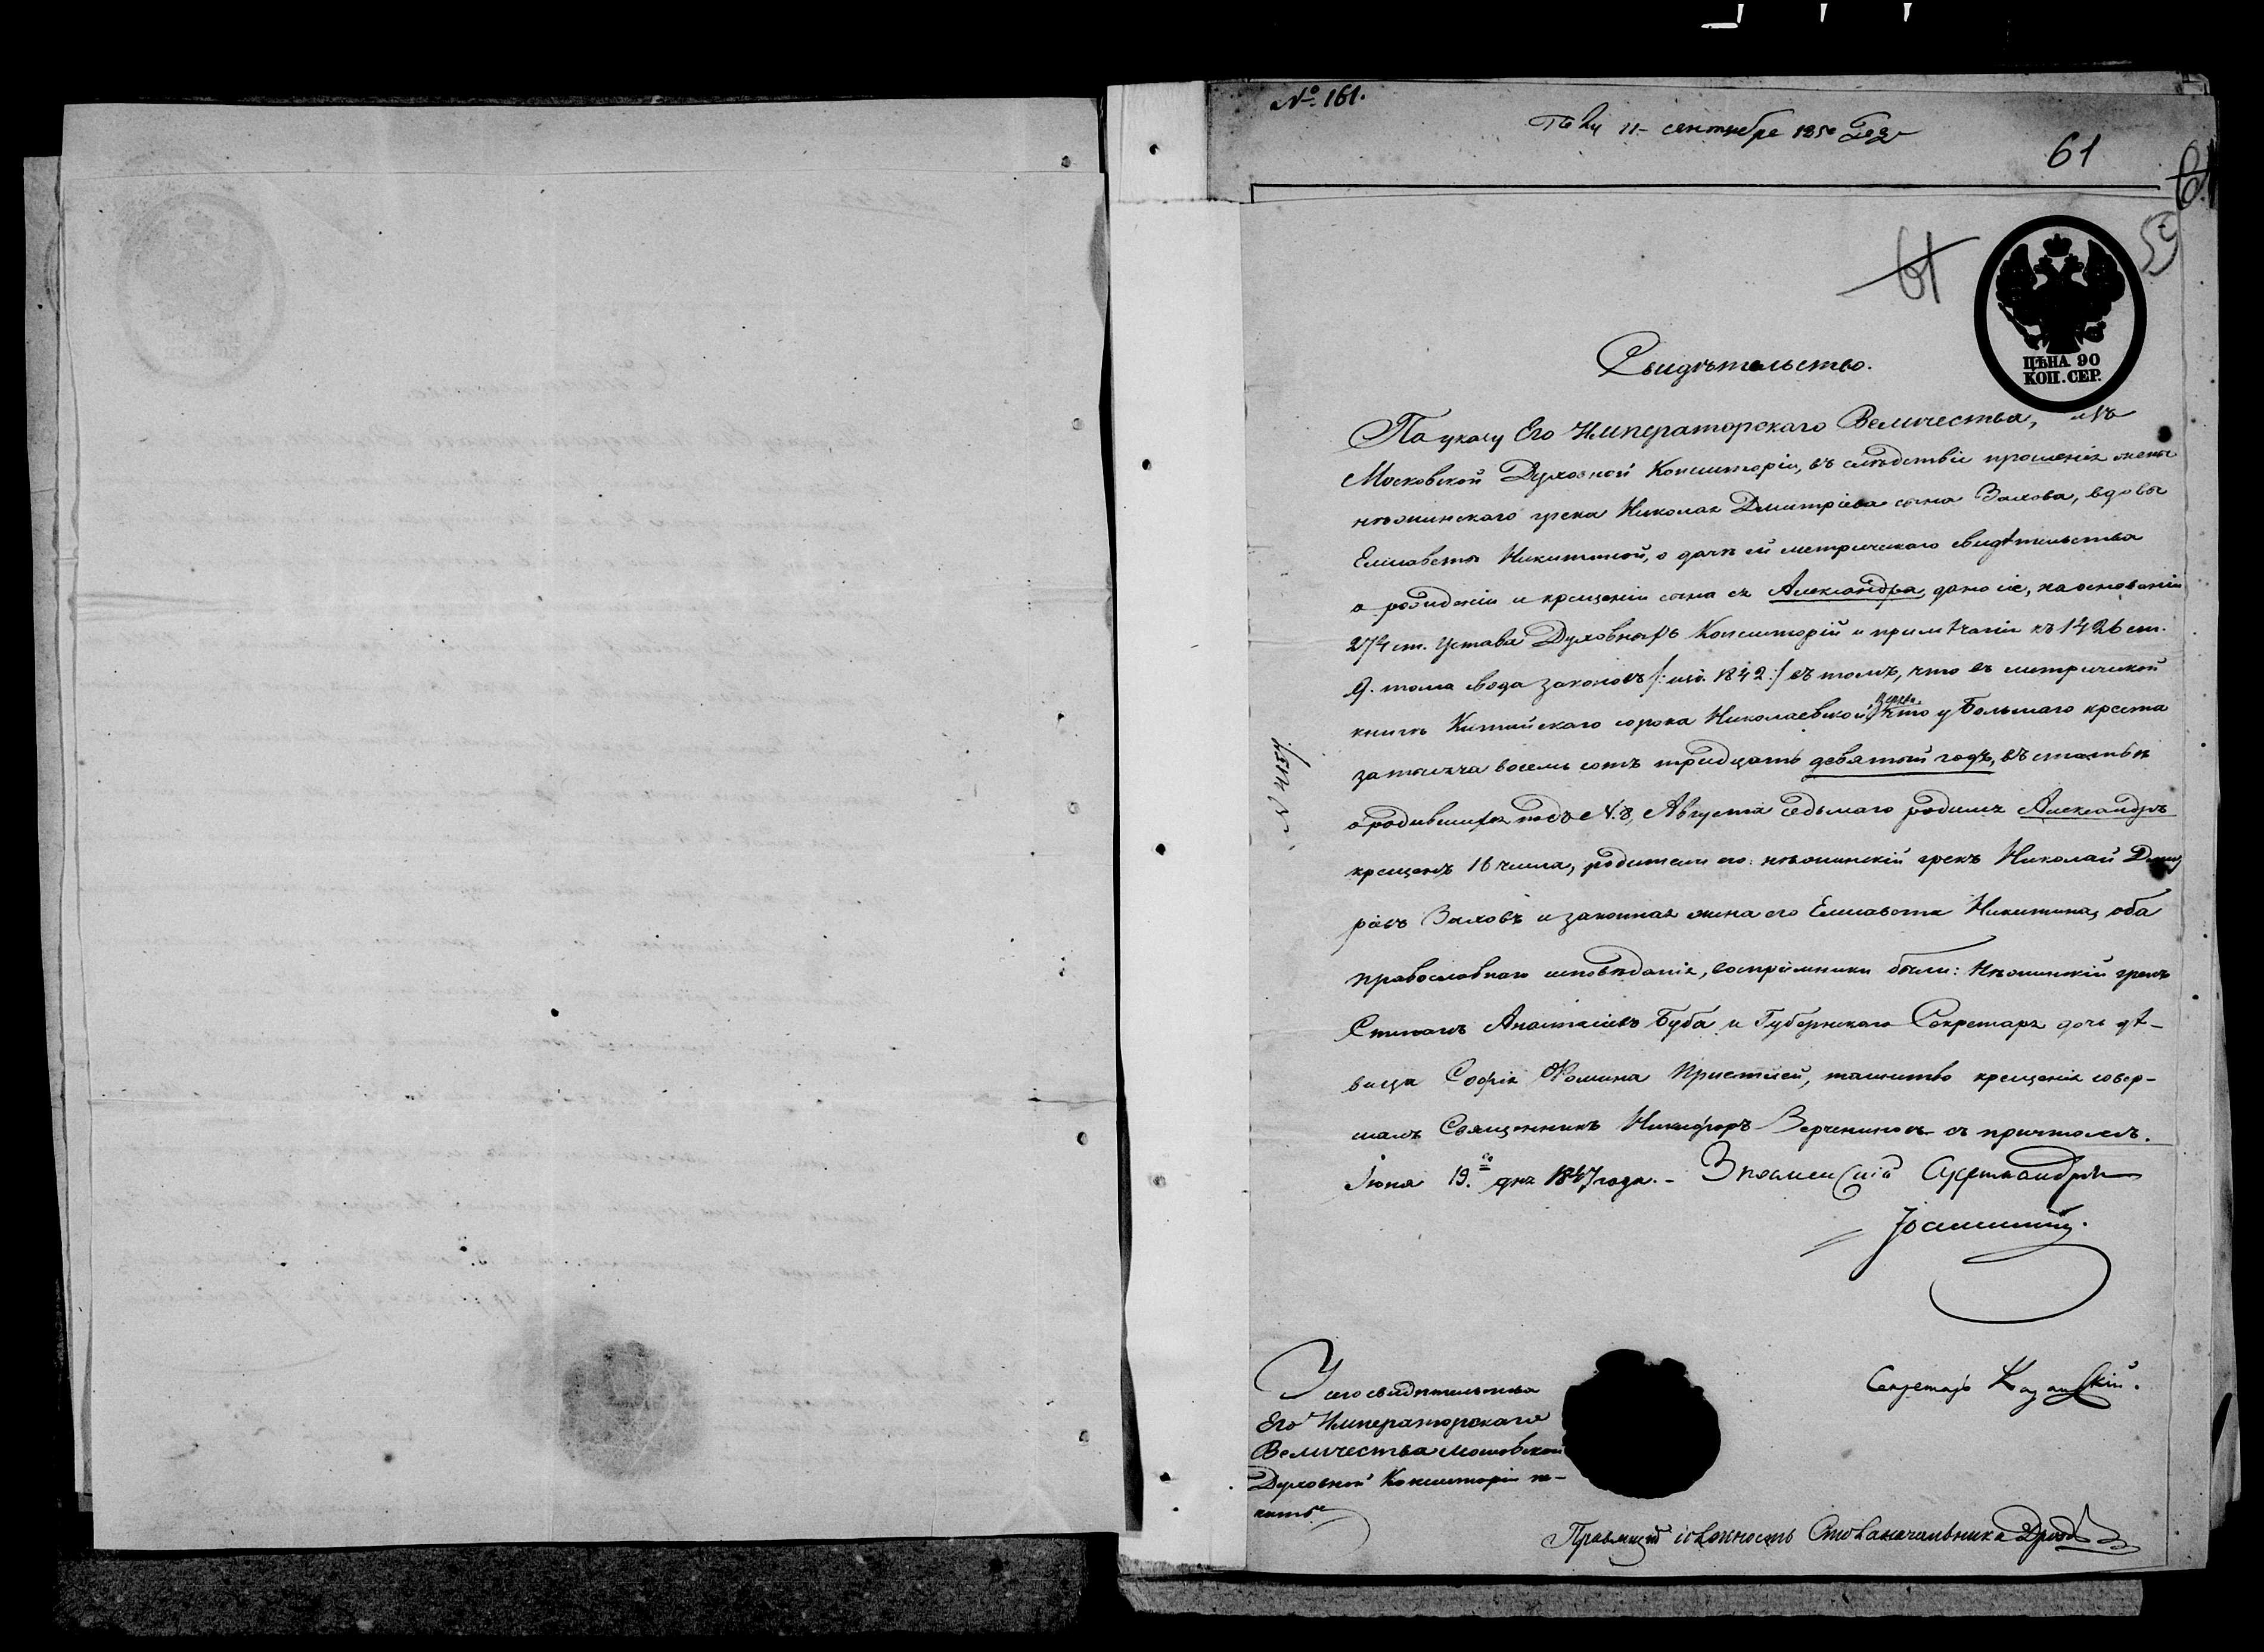 № 161.
11 сентября 1850 года
61
61
59
61
ЦѢНА 90
КОП. СЕР.
Свидѣтельство.
По указу Его Императорскаго Величества, изъ
Московской Духовной Консисторіи, въ слѣдствіе прошенія жены
нѣжинскаго грека Николая Дмитріева сына Захова, вдовы
Елисаветы Никитиной, о дачѣ ей метрическаго свидѣтельства
о рожденіи и крещеніи сына ея Александра дано сіе, на основаніи
274 ст. Устава Духовныхъ Консисторій и примѣчанія къ 1426 ст.
9. тома свода законовъ /: изд. 1842 :/ въ томъ, что въ метрической
книгѣ Китайскаго сорока Николаевской, церкви, что у Большаго креста
за тысяча восемь сотъ тридцать девятый годъ, въ статьѣ
о родившихся подъ №. 8, Августа седьмаго родился Александръ
крещенъ 16 числа, родители его: нѣжинскій грекъ Николай Дмит
ріевъ Заховъ и законная жена его Елисавета Никитина, оба
православнаго исповѣданія, воспріемники были: Нѣжинскій грекъ
Степанъ Анастасіевъ Буба и Губернскаго Секретаря дочь дѣ-
вица Софія Фомина Кристлей, таинство крещенія совер-
шалъ Священникъ Никифоръ Верченинов съ причтомъ.
Іюня 19.го дня 1847 года. - Знаменскій Архимандритъ
Секретарь
№ 4157.
У сего свидѣтельства
Его Императорскаго
Величества Московской
Духовной Консисторіи пе-
чать
Правящій должность Столоначальника Дроздовъ